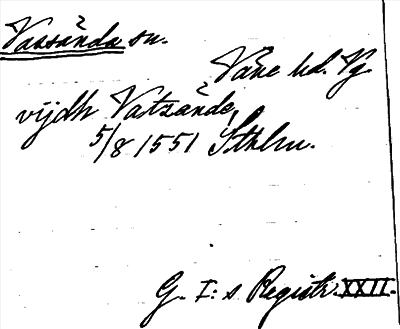 Vassända sn.
Väne hd. Vg.
vijdh Vatzände,
5/8 1551 Sthlm.
G. I:s Registr. XXII.